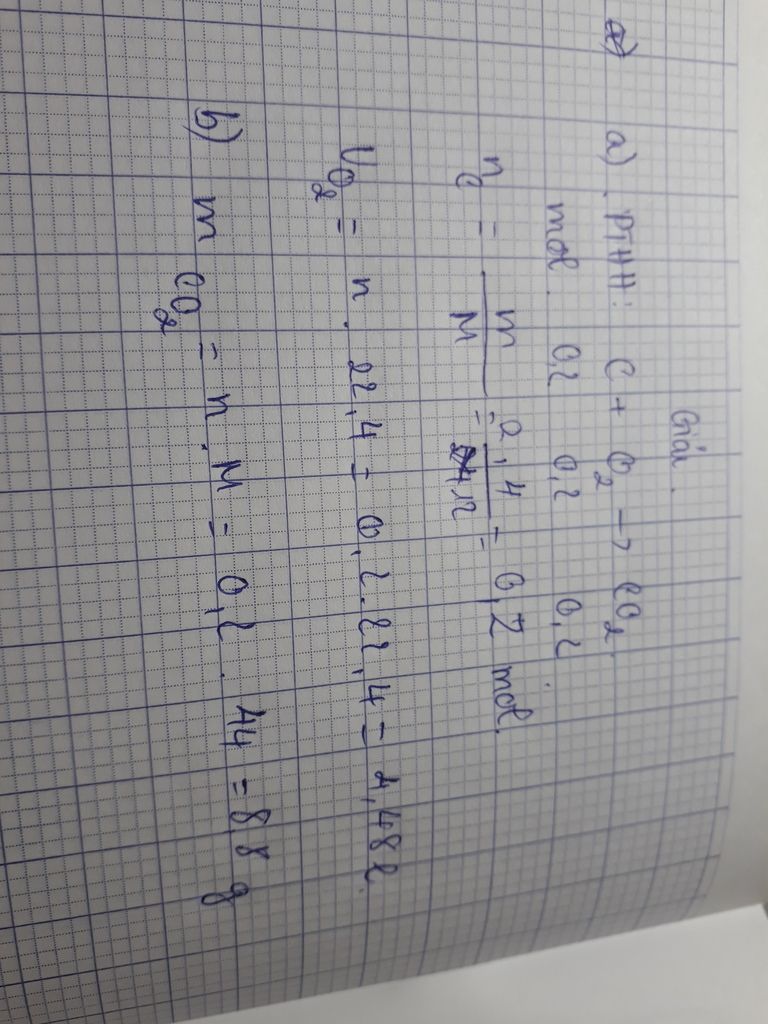 Giải.
a) PTHH: C + O₂ → CO₂
mol. 0,2 0,2 0,2
nC = m/M = 2,4/12 = 0,2 mol.
VO₂ = n . 22,4 = 0,2 . 22,4 = 4,48 l.
b) mCO₂ = n . M = 0,2 . 44 = 8,8 g